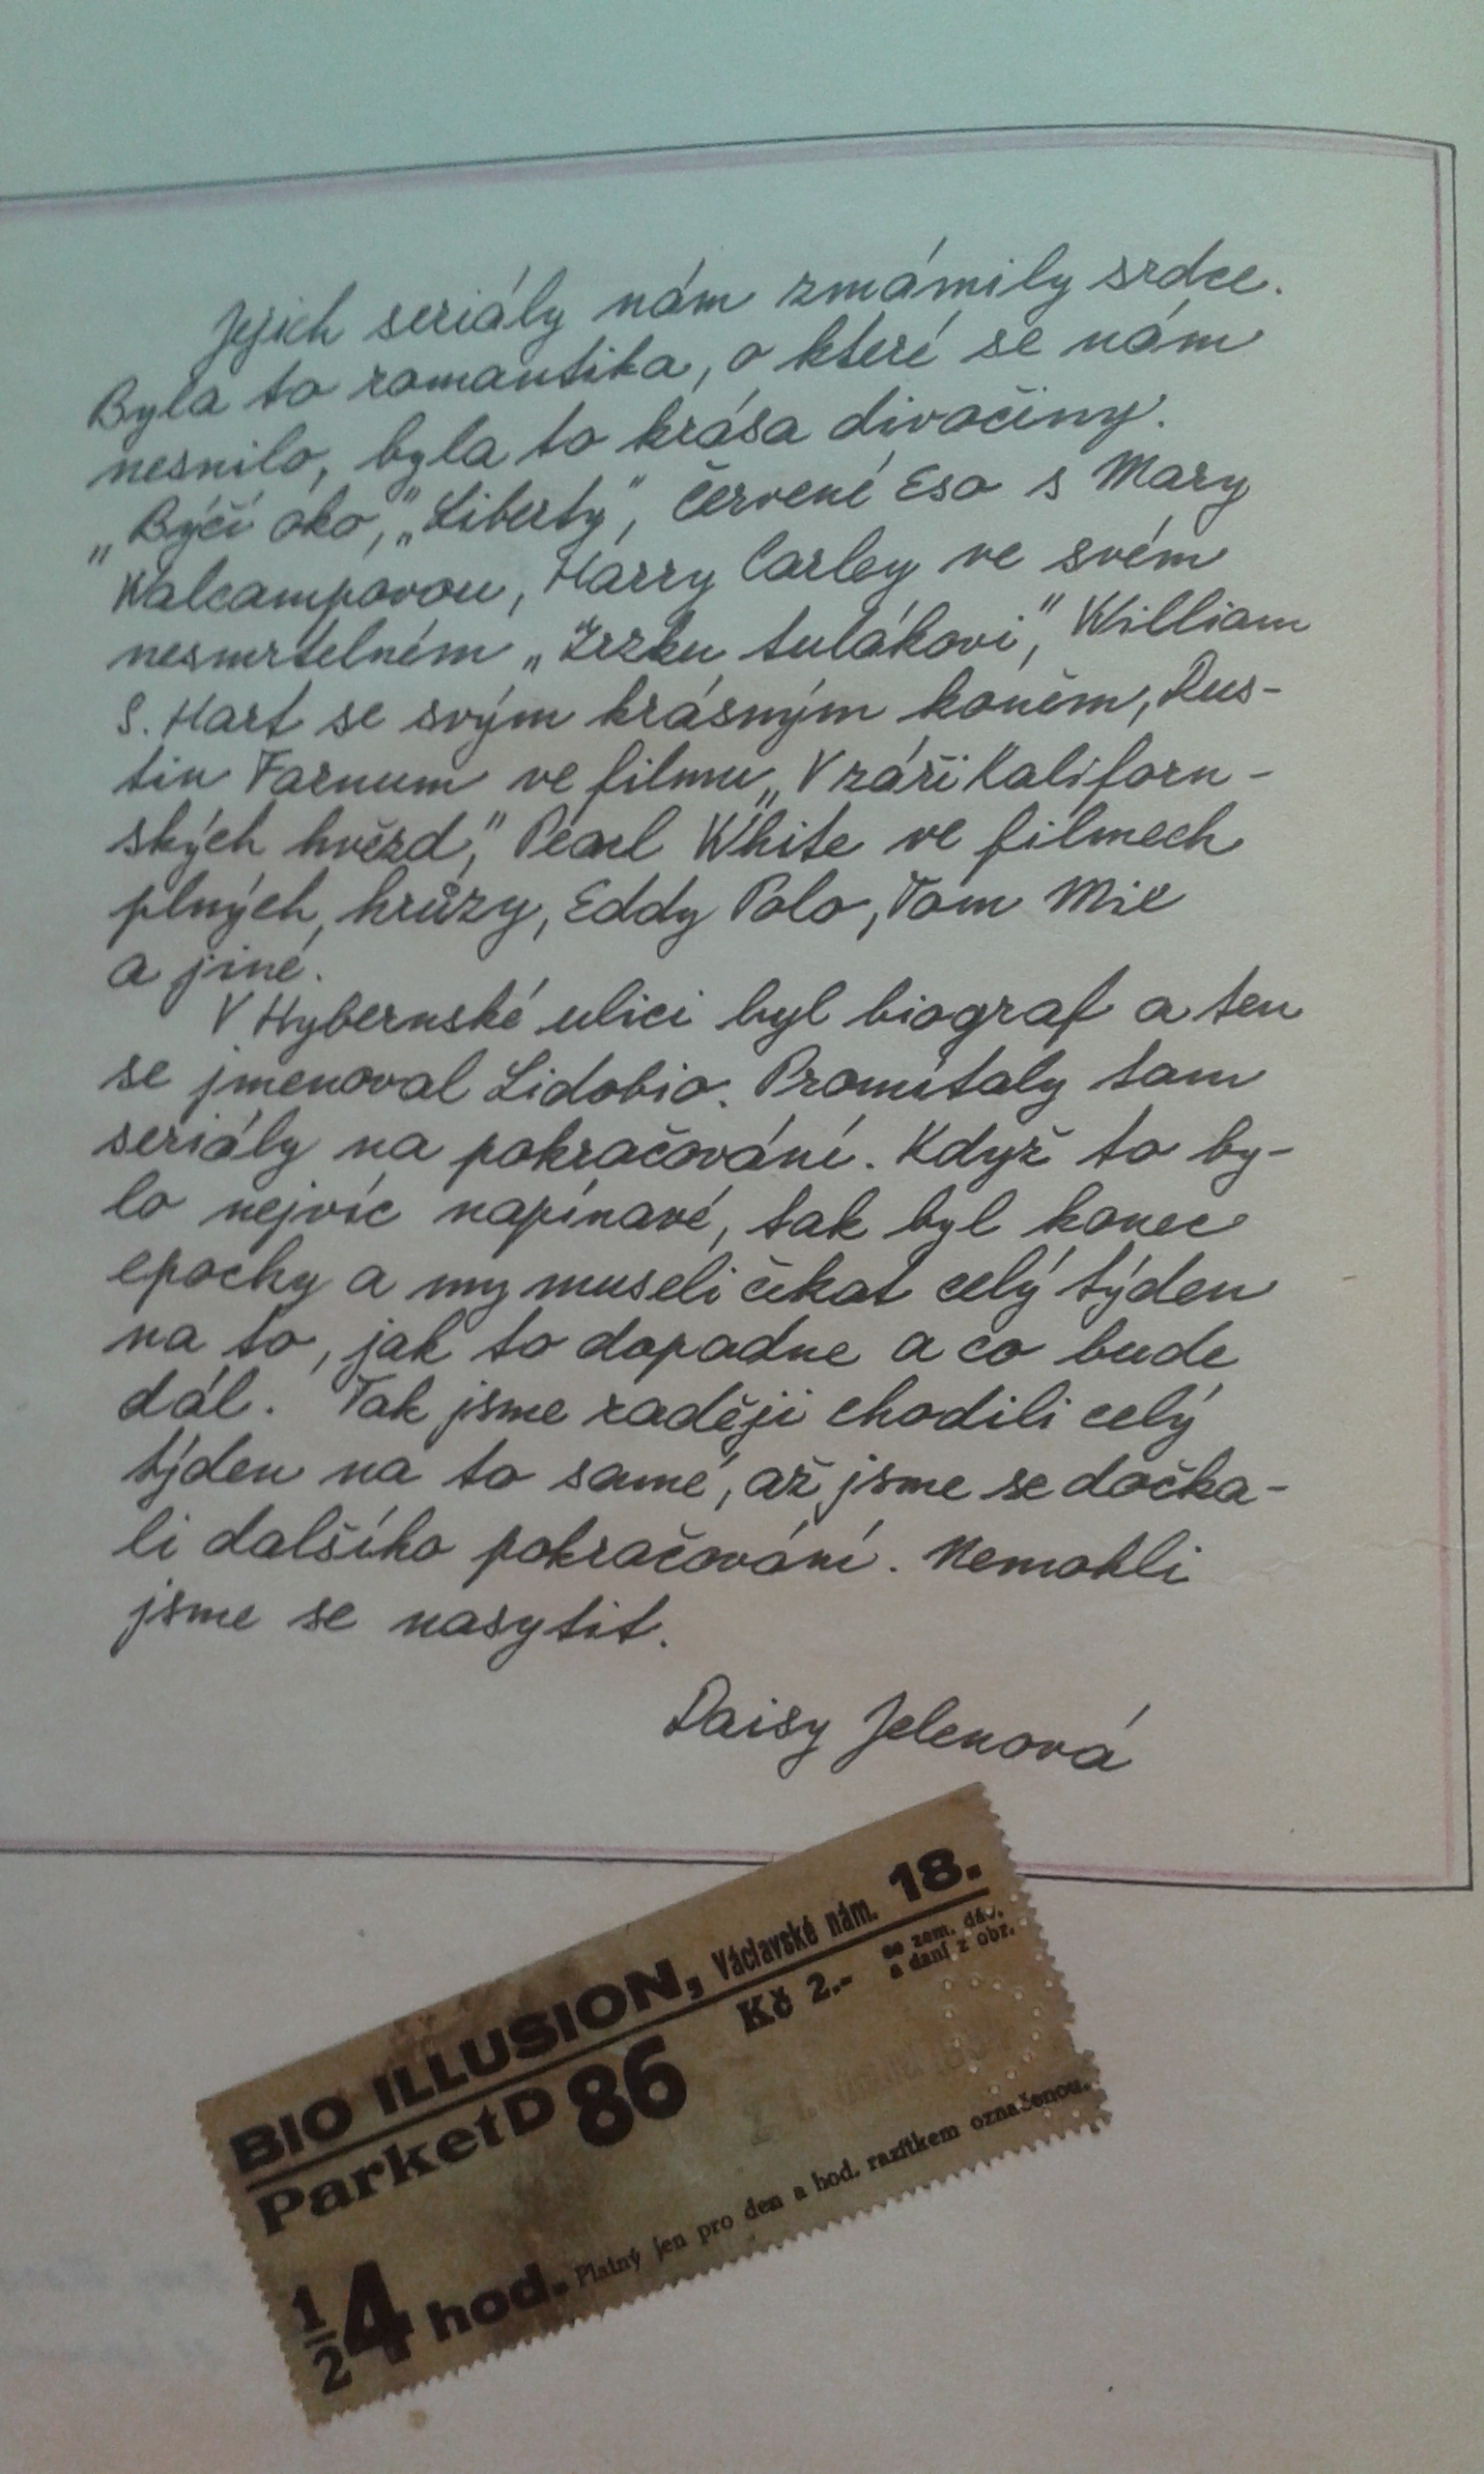 Jejich seriály nám zmámily srdce.
Byla to romantika, o které se nám
nesnilo, byla to krása divočiny.
„Býčí oko", „Liberty", Červené Eso s Mary
Walcampovou, Harry Carley ve svém
nesmrtelném „Zrzku tulákovi", William
S. Hart se svým krásným koněm, Dus-
tin Farnum ve filmu „V záři Kaliforn-
ských hvězd", Pearl White ve filmech
plných hrůzy, Eddy Polo, Tom Mix
a jiné.
V Hybernské ulici byl biograf a ten
se jmenoval Lidobio. Promítaly tam
seriály na pokračování. Když to by-
lo nejvíc napínavé, tak byl konec
epochy a my museli čekat celý týden
na to, jak to dopadne a co bude
dál. Tak jsme raději chodili celý
týden na to samé, až jsme se dočka-
li dalšího pokračování. Nemohli
jsme se nasytit.
Daisy Jelenová
BIO ILLUSION, Václavské nám. 18.
Parket D 86 Kč 2.- se zem. dáv.
a daní z obr.
1/2 4 hod. Platný jen pro den a hod. razítkem označenou.